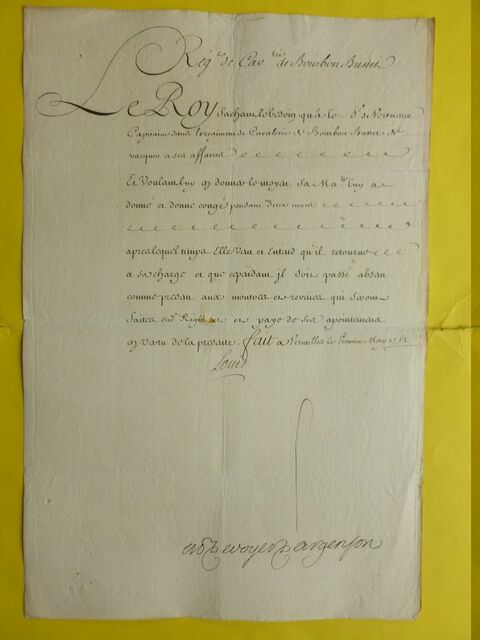 Reg.t de Cav.rie de Bourbon Busset
Le Roy sachant le besoin qu'a le S.r de
Capitaine dans le regiment de Cavalerie de Bourbon Busset, de
vacquer a ses affaires
Et Voulant luy en donner le moyen, Sa Ma.té luy a
donné et donne congé pendant deux mois
apres lequel temps Elle Veut et Entend qu'il retourne
a sa charge et que cependant jl soit passé absent
comme present aux montres et reveües qui seront
faites dud. Regiment et payé de ses apointemens
en vertu de la presente. Fait a Versailles le Premier May
Louis
de voyer d'argenson